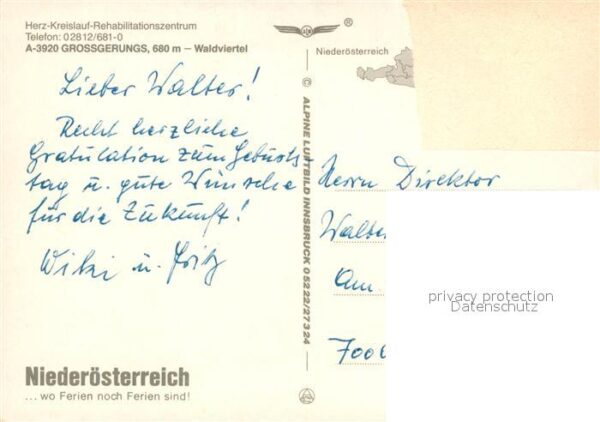 Herz-Kreislauf-Rehabilitationszentrum
Telefon: 02812/681-0
A-3920 GROSSGERUNGS, 680 m – Waldviertel
Lieber Walter!
Recht herzliche
Gratulation zum Geburts-
tag u. gute Wünsche
für die Zukunft!
Wilki u. Fritz
Niederösterreich
... wo Ferien noch Ferien sind!
®
© ALPINE LUFTBILD INNSBRUCK 05222/27324
Niederösterreich
Herrn Direktor
Walter
Am
7000
privacy protection
Datenschutz